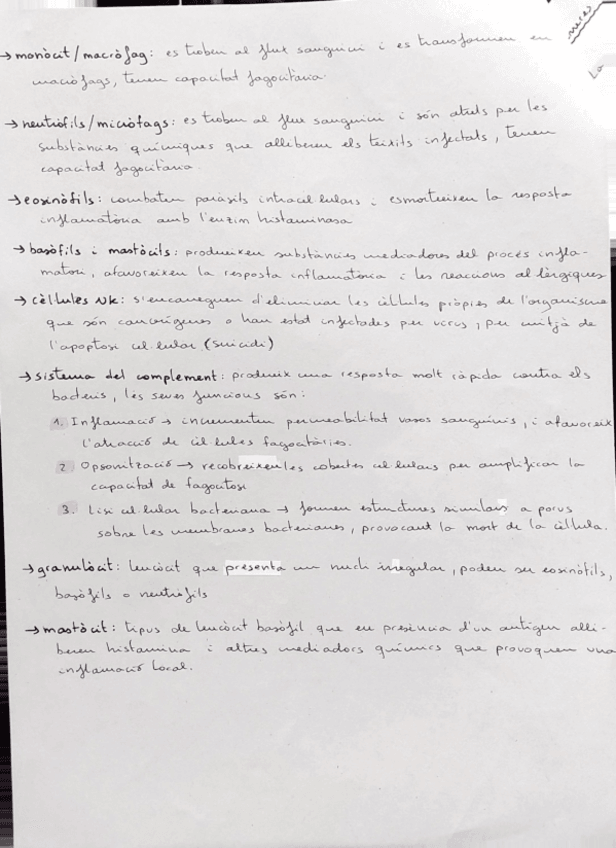 → monòcit / macròfag: es troben al flux sanguini i es transformen en
macròfags, tenen capacitat fagocitària.
→ neutròfils / micròfags: es troben al flux sanguini i són atrets per les
substàncies químiques que alliberen els teixits infectats, tenen
capacitat fagocitària.
→ eosinòfils: combaten paràsits intracel·lulars i esmorteixen la resposta
inflamatòria amb l'enzim histaminasa
→ basòfils i mastòcits: produeixen substàncies mediadores del procés infla-
matori, afavoreixen la resposta inflamatòria i les reaccions al·lèrgiques
→ cèl·lules NK: s'encarreguen d'eliminar les cèl·lules pròpies de l'organisme
que són cancerígenes o han estat infectades per virus, per mitjà de
l'apoptosi cel·lular (suïcidi)
→ sistema del complement: produeix una resposta molt ràpida contra els
bacteris, les seves funcions són:
1. Inflamació → incrementen permeabilitat vasos sanguinis, i afavoreix
l'atracció de cèl·lules fagocitàries.
2 Opsonització → recobreixen les cobertes cel·lulars per amplificar la
capacitat de fagocitosi
3. Lisi cel·lular bacteriana → formen estructures similars a porus
sobre les membranes bacterianes, provocant la mort de la cèl·lula.
→ granulòcit: leucòcit que presenta un nucli irregular, poden ser eosinòfils,
basòfils o neutròfils
→ mastòcit: tipus de leucòcit basòfil que en presència d'un antigen alli-
beren histamina i altres mediadors químics que provoquen una
inflamació local.